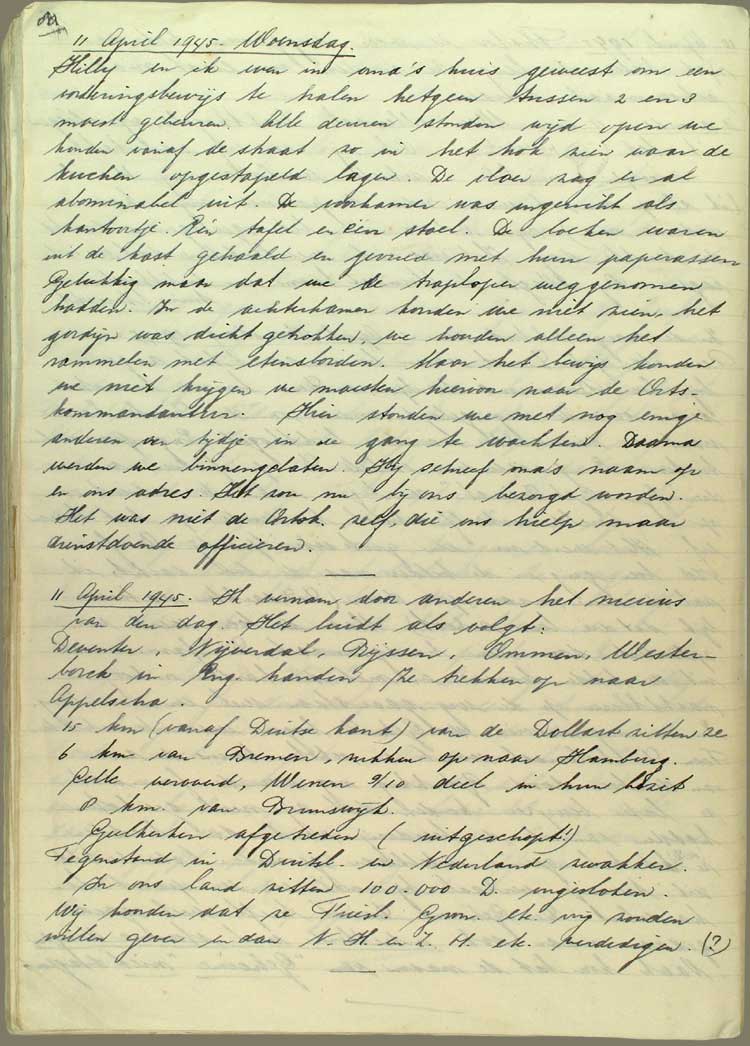 8a
11 April 1945. Woensdag.
Hilly en ik even in oma's huis geweest om een
vorderingsbewijs te halen hetgeen tussen 2 en 3
moest gebeuren. Alle deuren stonden wijd open we
konden vanaf de straat zo in het hok zien waar de
kuchen opgestapeld lagen. De vloer zag er al
abominabel uit. De voorkamer was ingericht als
kantoortje. Eén tafel en één stoel. De boeken waren
uit de kast gehaald en gevuld met hun paperassen
Gelukkig maar dat we de traploper weggenomen
hadden. In de achterkamer konden we niet zien, het
gordijn was dicht getrokken, we hoorden alleen het
rammelen met etensborden. Maar het bewijs konden
we niet krijgen we moesten hiervoor naar de Orts-
kommandantur. Hier stonden we met nog enige
anderen een tijdje in de gang te wachten. Daarna
werden we binnengelaten. Hij schreef oma's naam op
en ons adres. Het zou nu bij ons bezorgd worden.
Het was niet de Ortsk. zelf, die ons hielp maar
dienstdoende officieren.
11 April 1945. Ik vernam door anderen het nieuws
van den dag. Het luidt als volgt:
Deventer, Nijverdal, Rijssen, Ommen, Wester-
borck in Eng. handen Ze trekken op naar
Appelscha.
15 km (vanaf Duitse kant) van de Dollart zitten ze
6 km van Bremen, rukken op naar Hamburg.
Celle veroverd, Wenen 9/10 deel in hun bezit
8 km. van Brunswijk.
Geelkerken afgetreden (uitgeschopt!)
Tegenstand in Duitsl. en Nederland zwakker.
In ons land zitten 100.000 D. ingesloten.
Wij hoorden dat ze Friesl. Gron. etc. vrij zouden
willen geven en dan N. H. en Z. H. etc. verdedigen. (?)